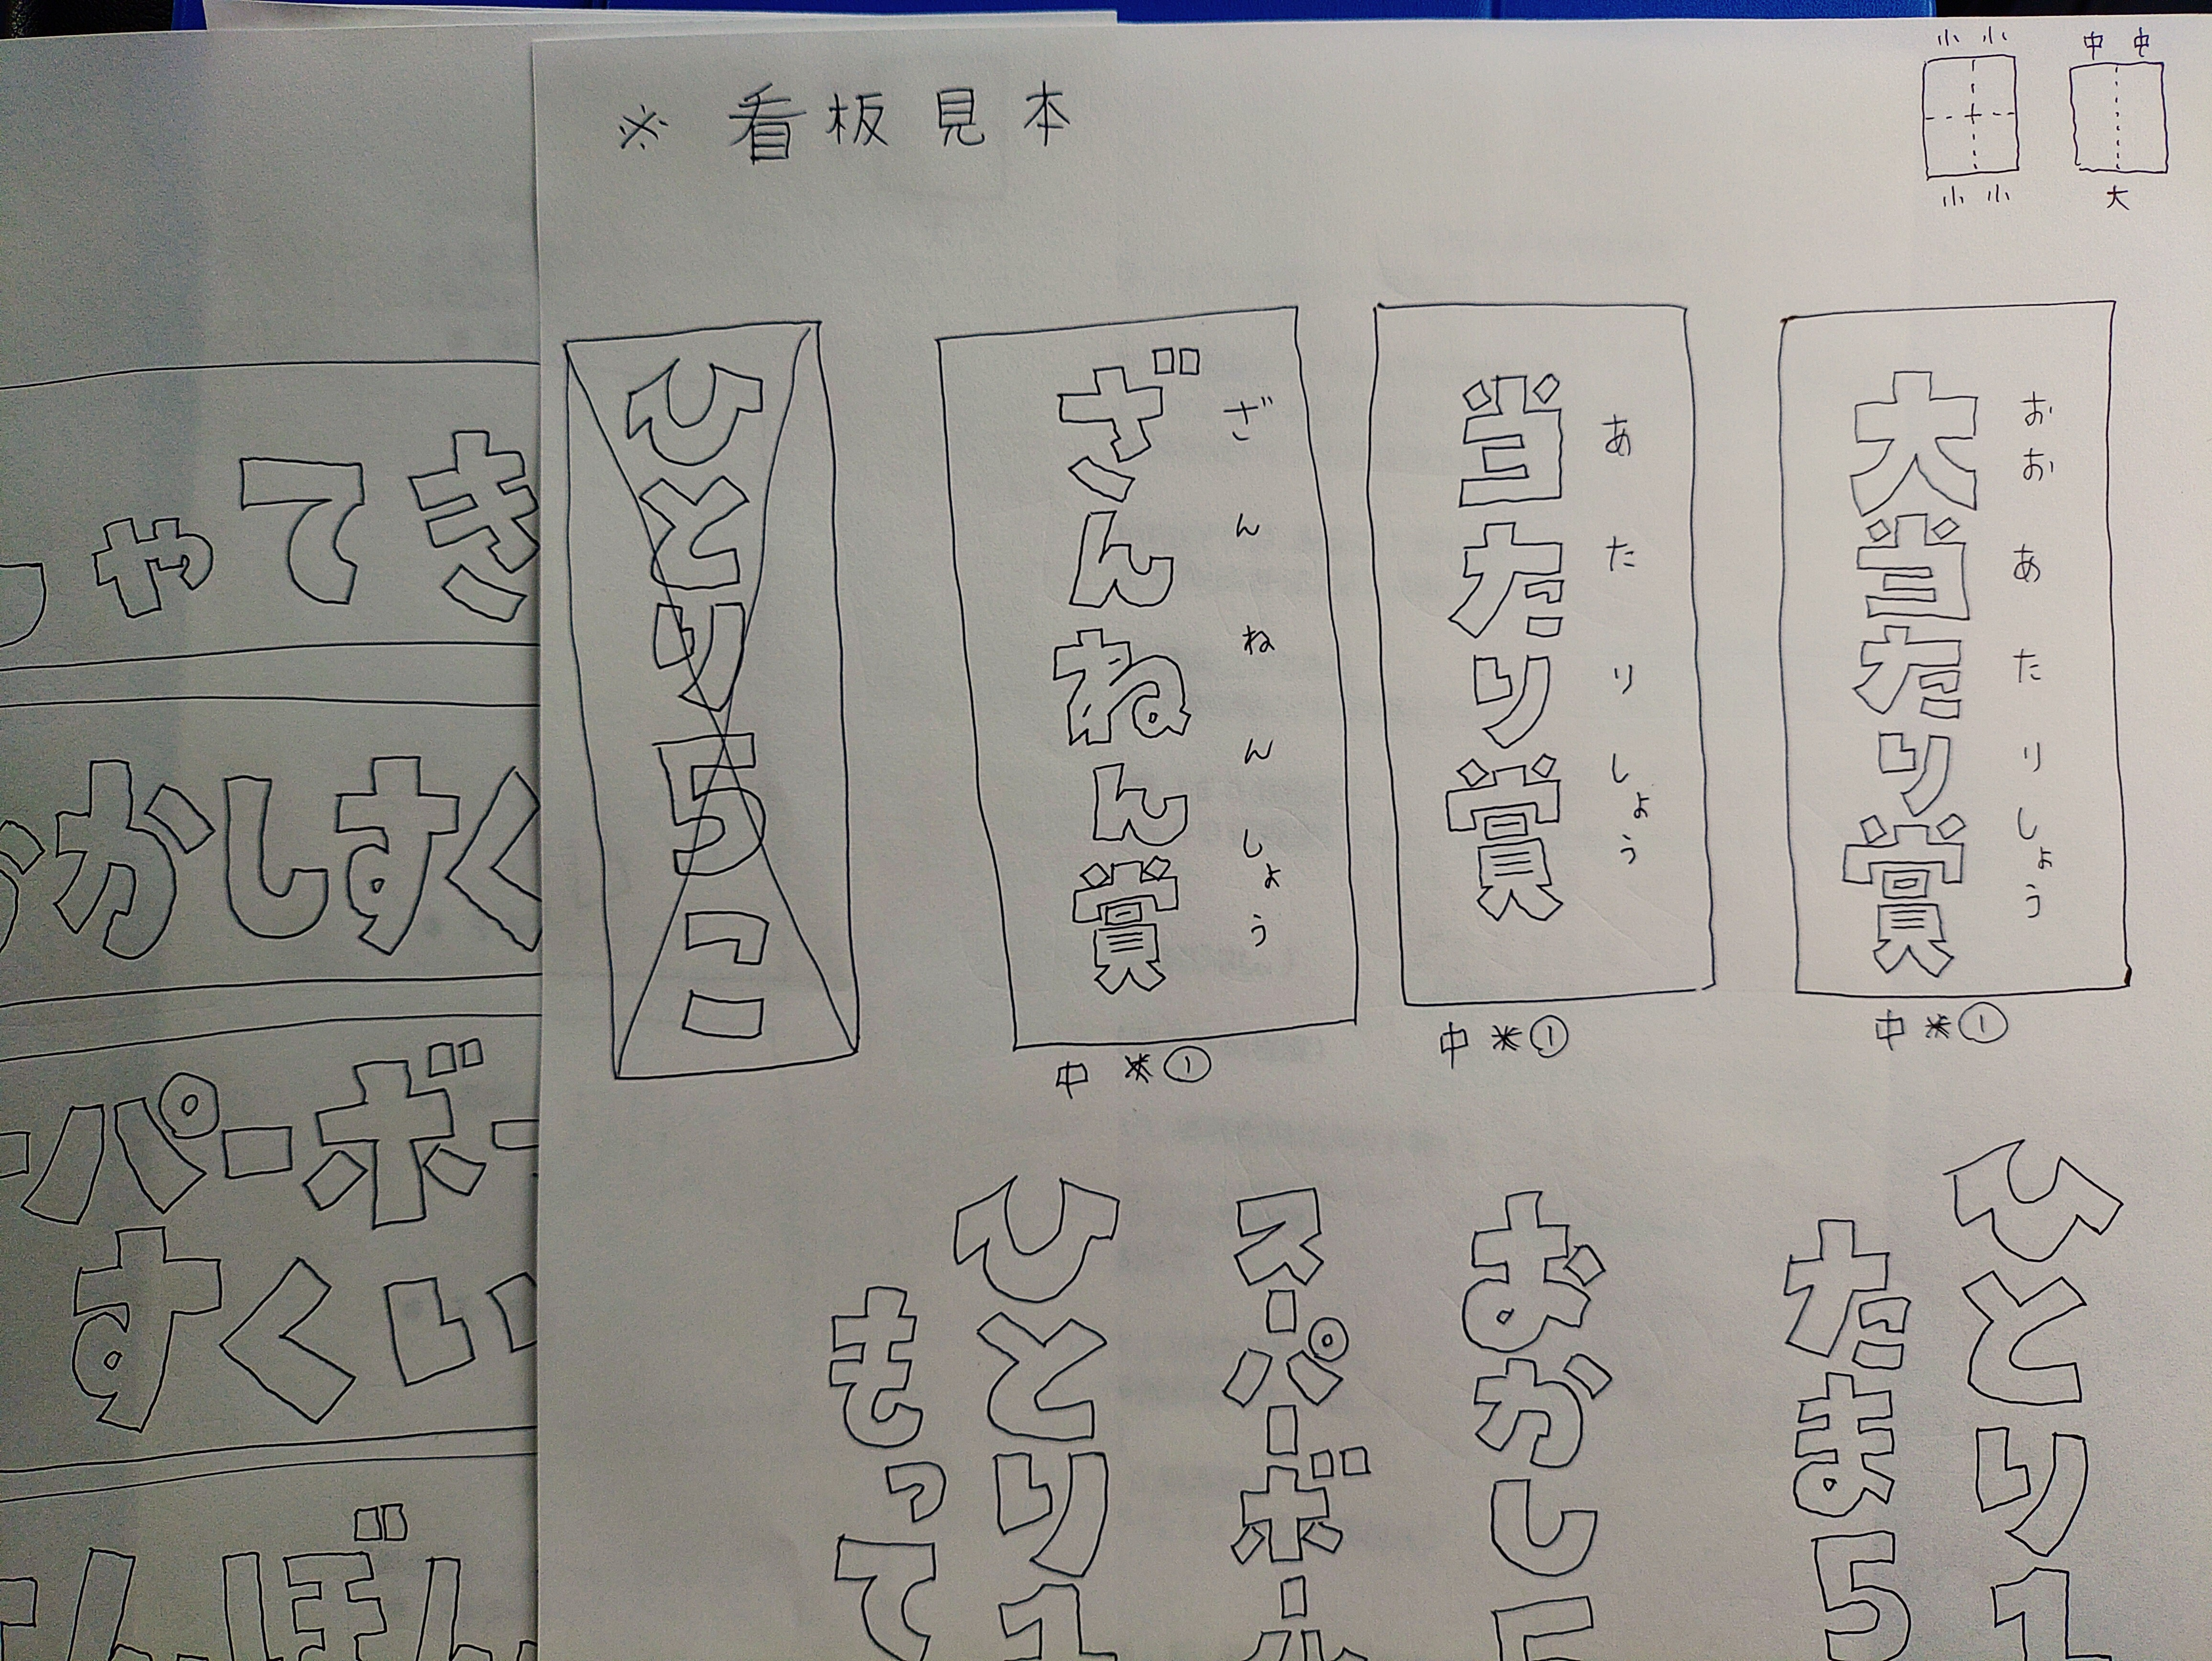 ※ 看板見本
小 小
小 小
中 中
大
大当たり賞
おおあたりしょう
中 ※①
当たり賞
あたりしょう
中 ※①
ざんねん賞
ざんねんしょう
中 ※①
ひとり5こ
ひとり1
たま5
おかし
スーパーボール
ひとり1
もって
ゃてき
かしすく
パーボー
すくい
んぼん